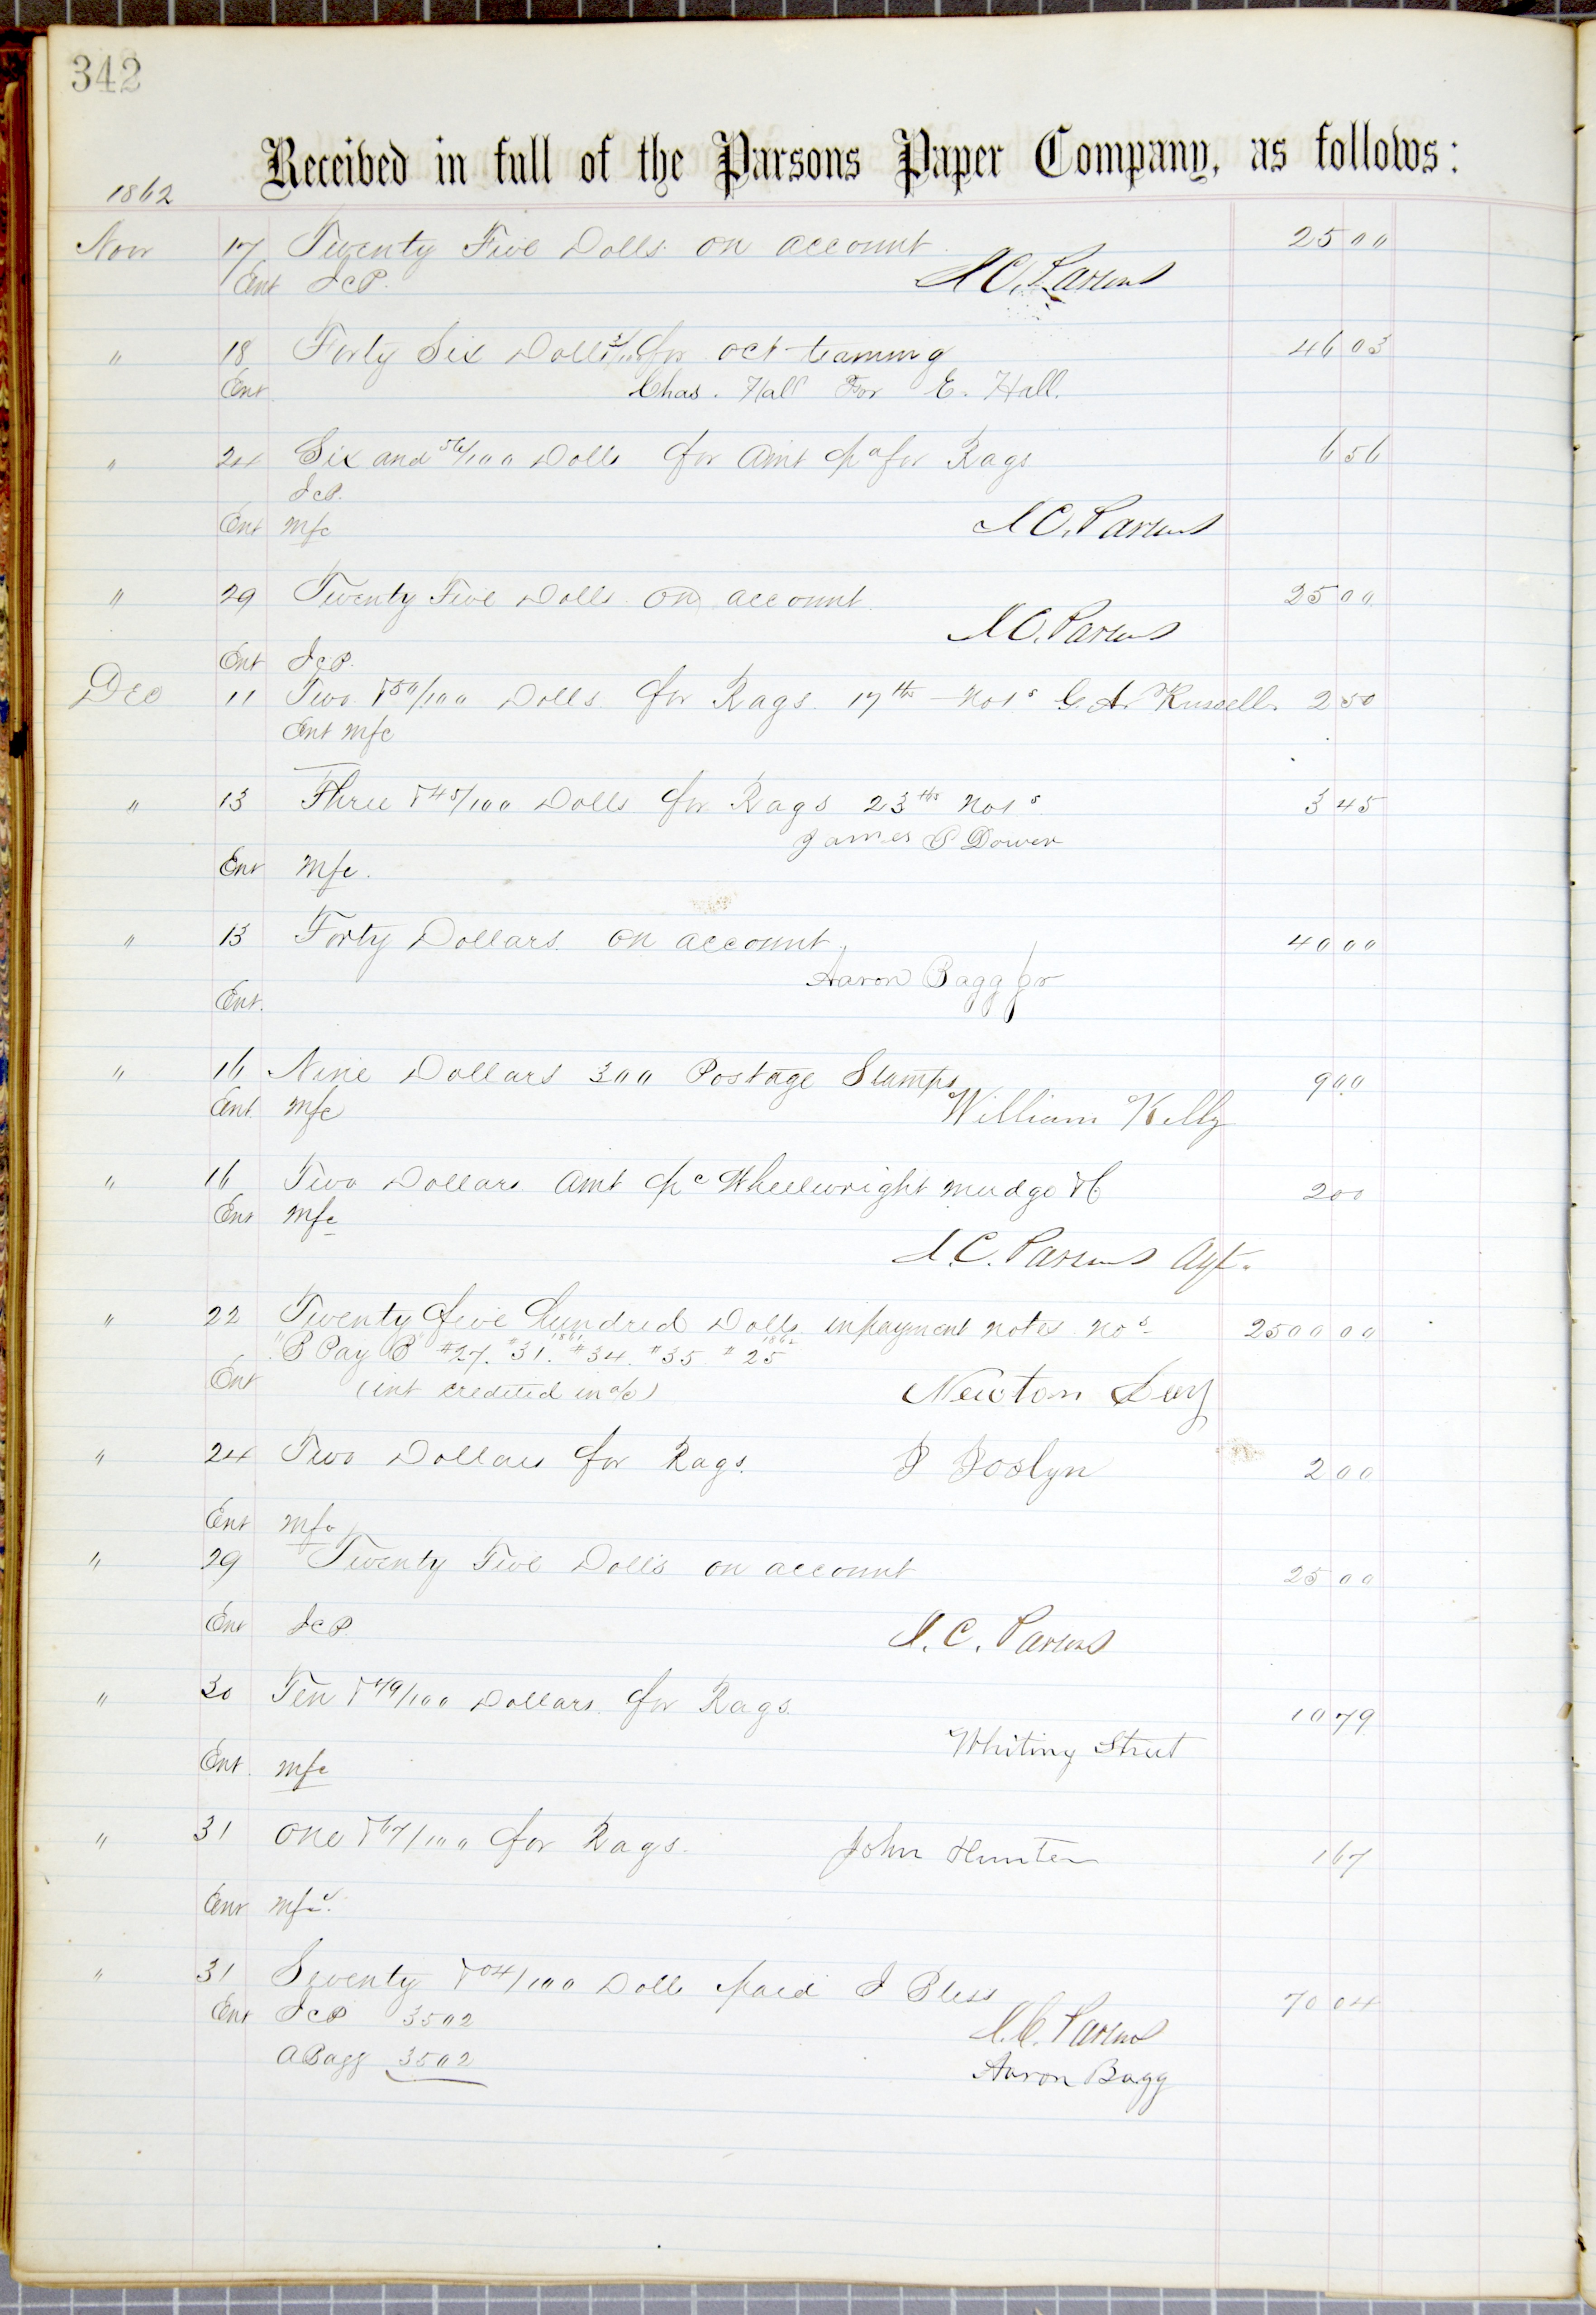 342
Received in full of the Parsons Paper Company, as follows:
1862
Nov 17 Twenty Five Dolls on account 25 00
Ent JCP. J C. Parsons
" 18 Forty Six Dolls 3/100 for Oct teaming 46 03
Ent Chas. Hall For E. Hall.
" 24 Six and 56/100 Dolls for Amt pd for Rags 6 56
JCP.
Ent Mfc J C. Parsons
" 29 Twenty Five Dolls on account 25 00
J C. Parsons
Ent JCP.
Dec 11 Two & 50/100 Dolls for Rags 17th Nos G. A. Russell 2 50
Ent Mfc
" 13 Three & 45/100 Dolls for Rags 23th Nos 3 45
James S Dower
Ent Mfc.
" 13 Forty Dollars on account. 40 00
Aaron Bagg Jr
Ent.
" 16 Nine Dollars 300 Postage Stamps 9 00
Ent Mfc William Kelly
" 16 Two Dollars Amt pd Wheelwright Mudge &c 2 00
Ent Mfc
J. C. Parsons Agt.
" 22 Twenty five hundred Dolls in payment notes Nos 2500 00
"B Pay B" #27. #31. 1861 #34. #35 #25 1862
Ent (int credited in a/c) Newton Day
" 24 Two Dollars for Rags. J Joslyn 2 00
Ent Mfc
" 29 Twenty Five Dolls on account 25 00
Ent JCP J. C. Parsons
" 30 Ten & 79/100 Dollars for Rags. 10 79
Whiting Street
Ent. Mfc
" 31 One & 67/100 for Rags. John Hunter 1 67
Ent Mfc.
" 31 Seventy & 04/100 Dolls paid J Bless 70 04
Ent JCP 3502 J. C. Parsons
A Bagg 3502 Aaron Bagg